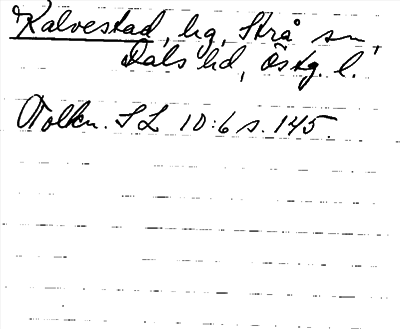 Kalvestad, hg, Strå sn,
Dals hd, Östg. l.
Tolkn. SL 10:6 s. 145.